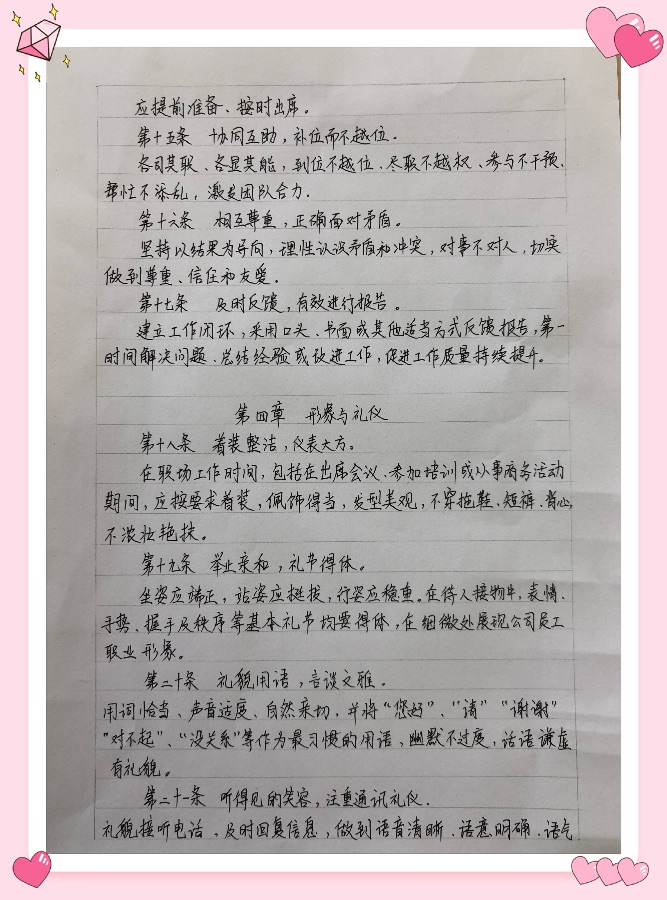 应提前准备、按时出席。
第十五条 协同互助，补位而不越位.
各司其职、各显其能，到位不越位、尽职不越权、参与不干预、
帮忙不添乱，激发团队合力.
第十六条 相互尊重，正确面对矛盾。
坚持以结果为导向，理性认识矛盾和冲突，对事不对人，切实
做到尊重、信任和友爱。
第十七条 及时反馈，有效进行报告。
建立工作闭环，采用口头、书面或其他适当方式反馈报告，第一
时间解决问题、总结经验或改进工作，促进工作质量持续提升。
第四章 形象与礼仪
第十八条 着装整洁，仪表大方。
在职场工作时间，包括在出席会议、参加培训或从事商务活动
期间，应按要求着装，佩饰得当，发型美观，不穿拖鞋、短裤、背心，
不浓妆艳抹。
第十九条 举止亲和，礼节得体。
坐姿应端正，站姿应挺拔，行姿应稳重。在待人接物中，表情、
手势、握手及秩序等基本礼节均要得体，在细微处展现公司员工
职业形象。
第二十条 礼貌用语，言谈文雅。
用词恰当、声音适度、自然亲切，并将“您好”、“请”“谢谢”
“对不起”、“没关系”等作为最习惯的用语，幽默不过度，话语谦虚
有礼貌。
第二十一条 听得见的笑容，注重通讯礼仪.
礼貌接听电话，及时回复信息，做到语音清晰、语意明确、语气